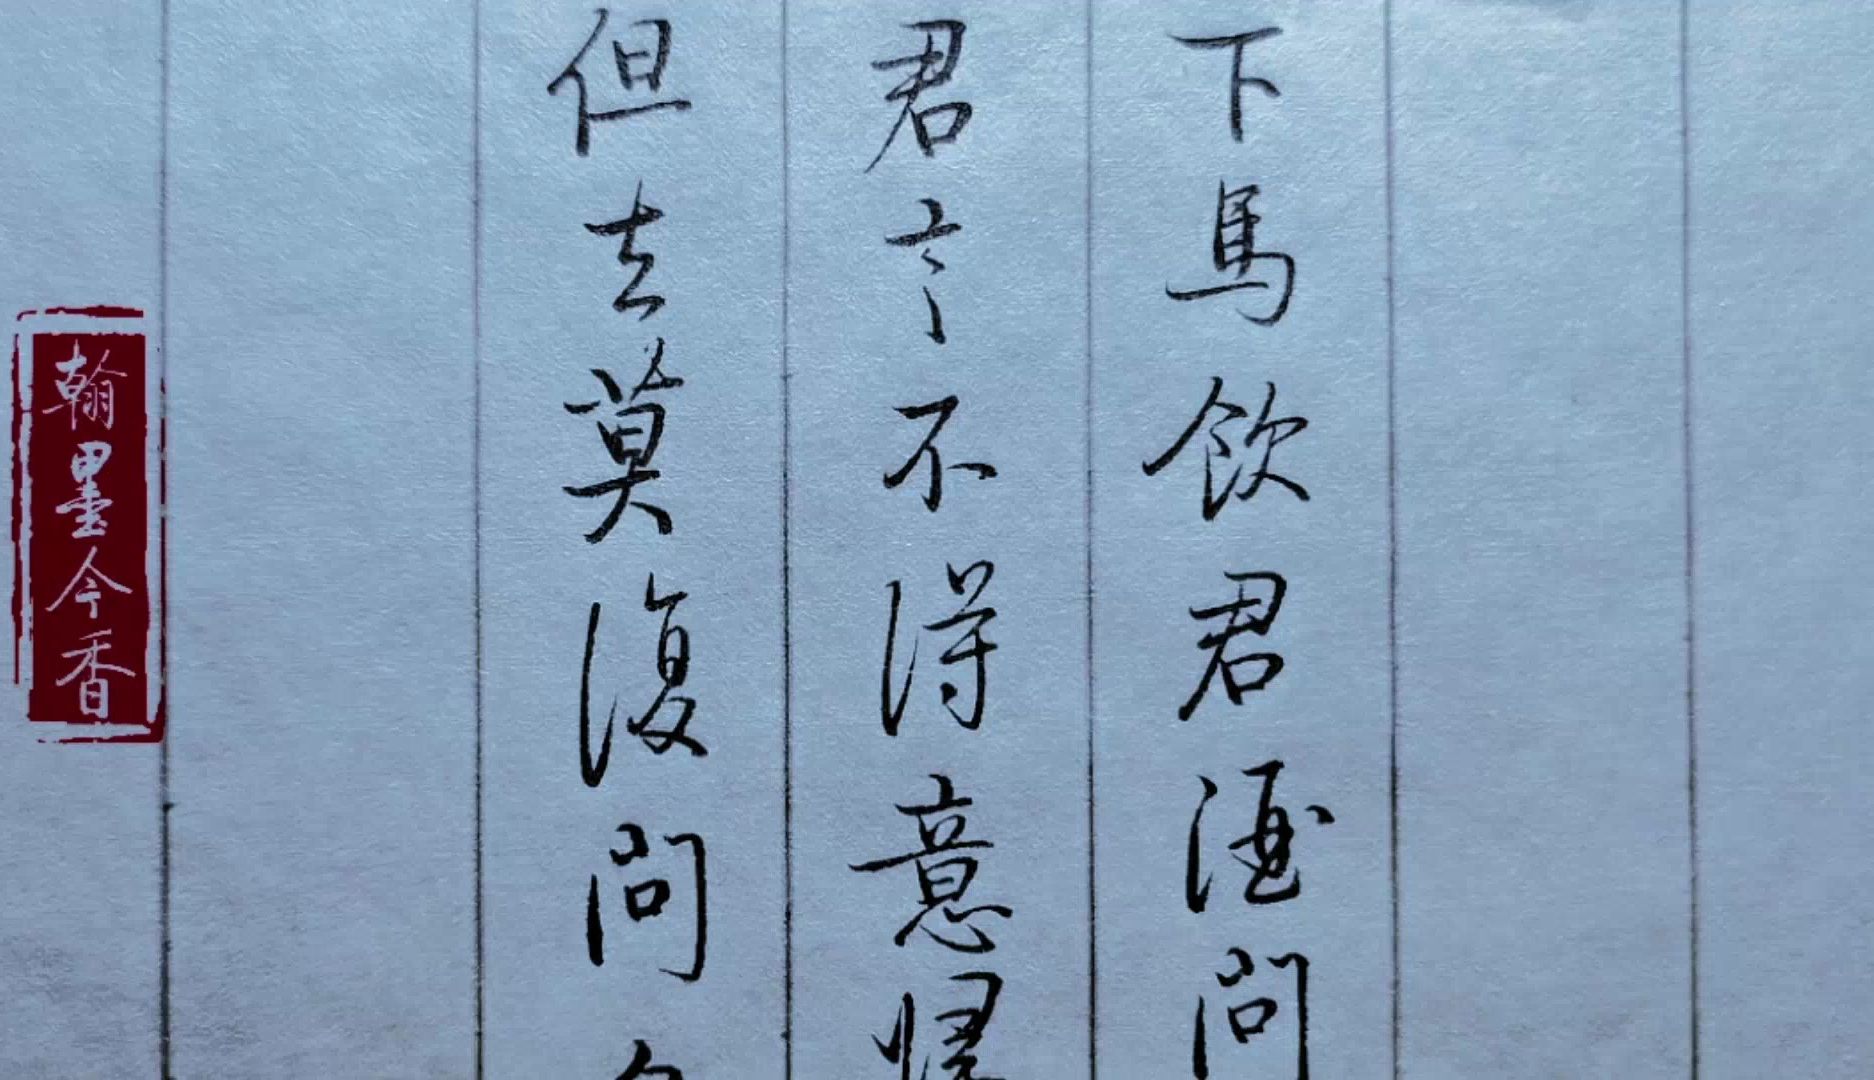 下馬飲君酒問
君言不得意歸
但去莫復問
翰墨今香